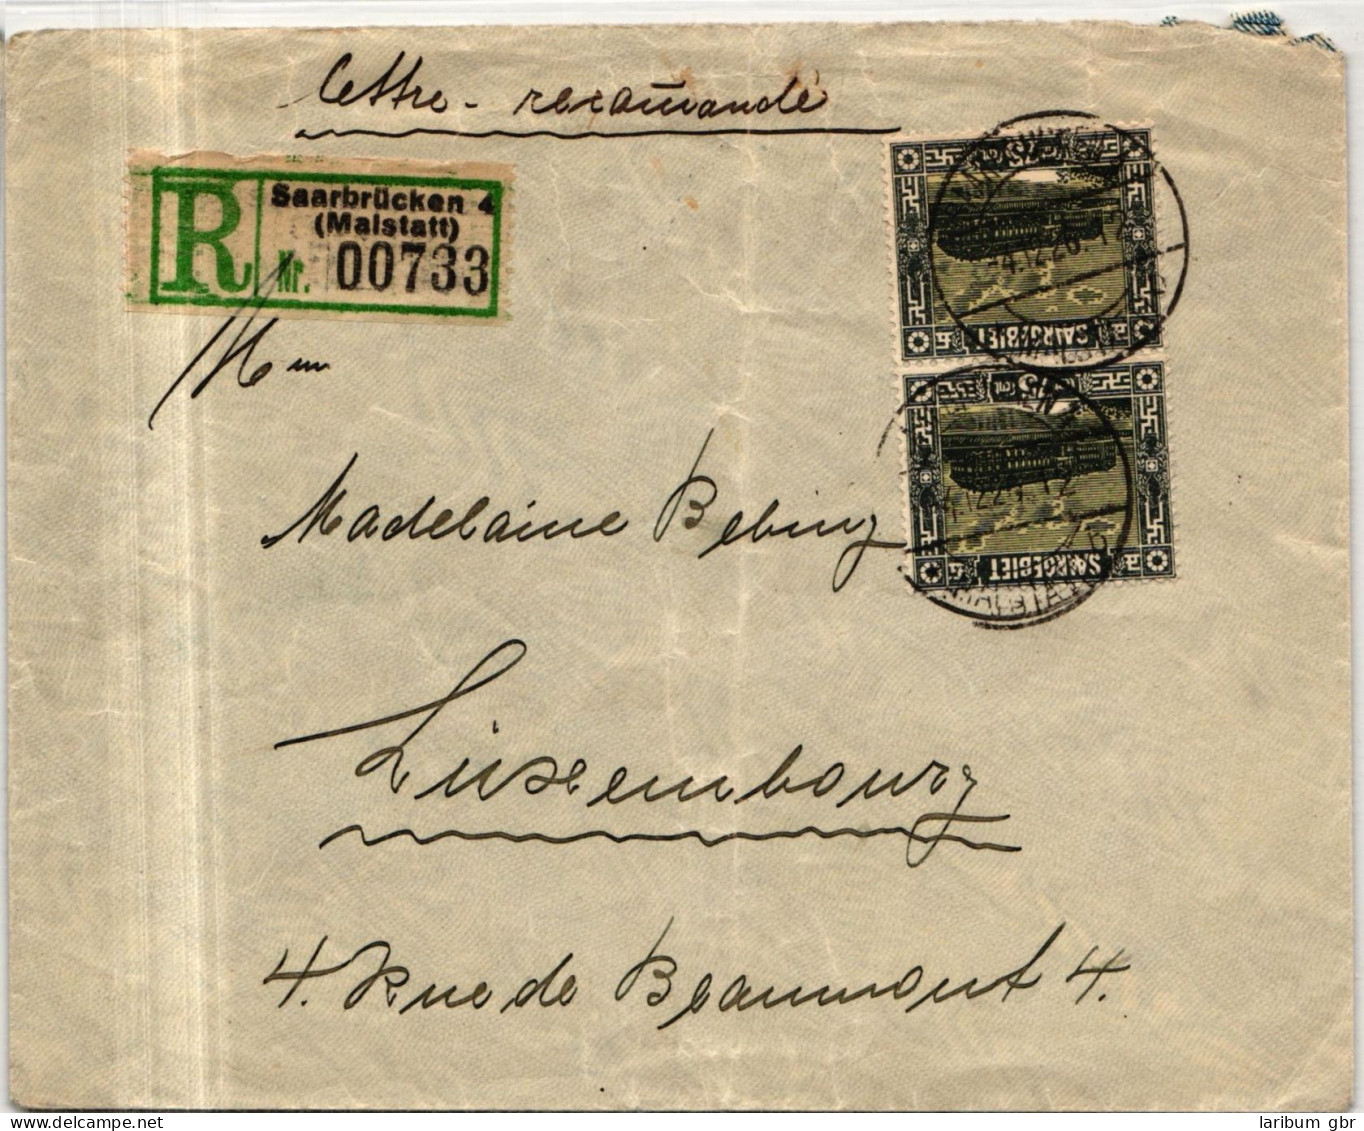 Lettre - recomandé
R
Saarbrücken 4
(Malstatt)
Nr. 00733
75 Ct. 75
SAARGEBIET
-4.12.26.
75 Ct. 75
SAARGEBIET
MALSTATT
Madelaine Bebing
Luxembourg
4. Rue de Beaumont 4.
laribum gbr